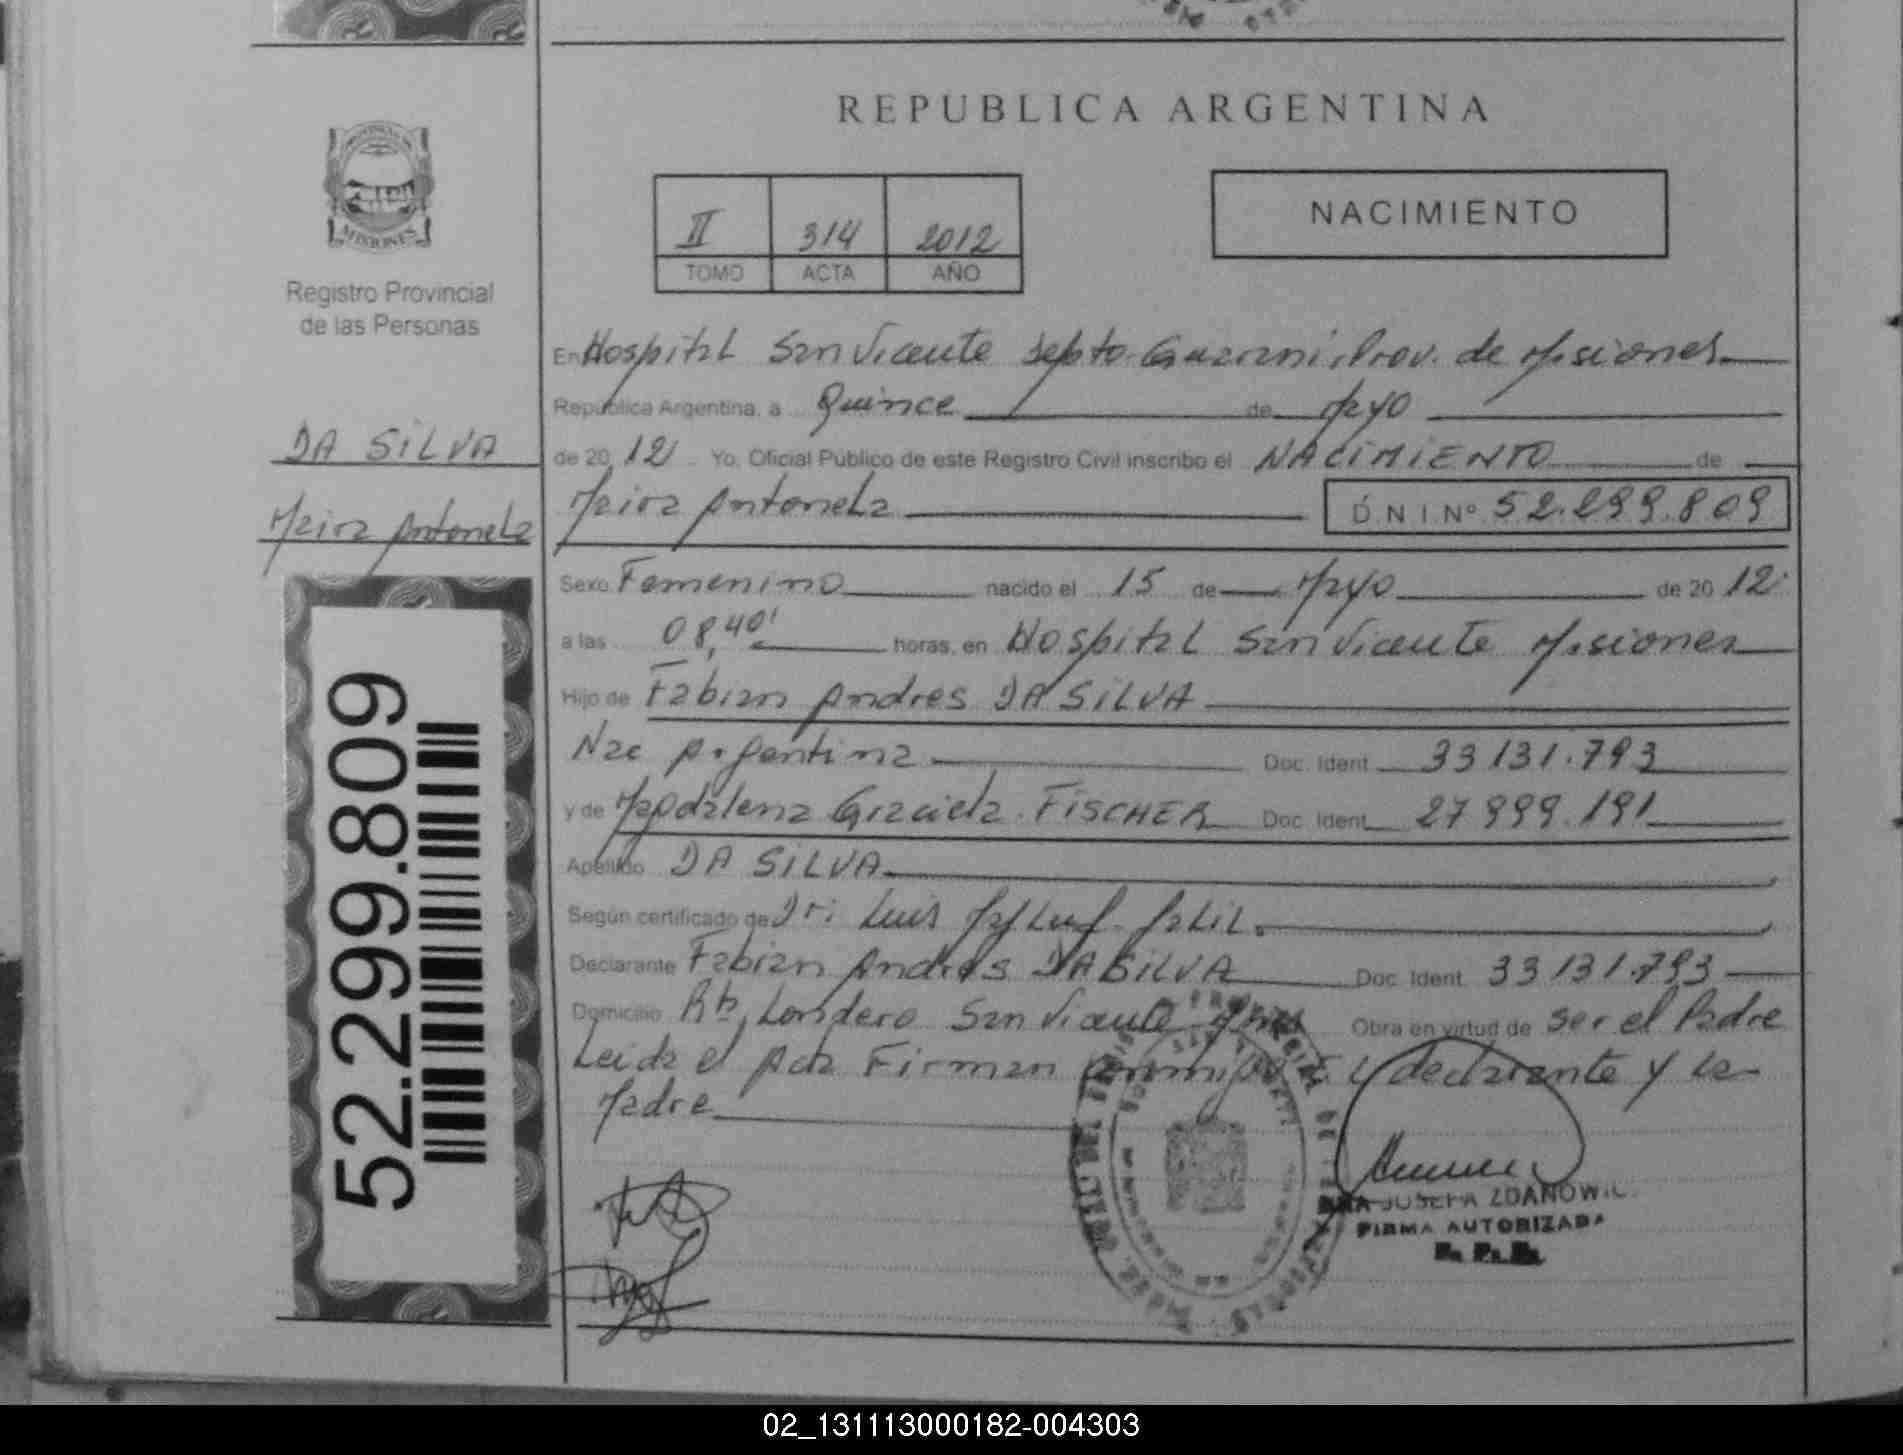 REPUBLICA ARGENTINA
NACIMIENTO
II 314 2012
TOMO ACTA AÑO
MISIONES
Registro Provincial
de las Personas
DA SILVA
Maira Antonela
52.299.809
En Hospital San Vicente Depto. Guarani Prov. de Misiones
República Argentina, a Quince de Mayo
de 20 12 Yo, Oficial Público de este Registro Civil inscribo el NACIMIENTO de
Maira Antonela D.N.I.Nº 52.299.809
Sexo Femenino nacido el 15 de Mayo de 20 12
a las 08,40' horas, en Hospital San Vicente Misiones
Hijo de Fabian Andres DA SILVA
Nac Argentina Doc. Ident 33131.793
y de Magdalena Graciela FISCHER Doc. Ident 27999.191
Apellido DA SILVA
Según certificado de Dr: Luis
Declarante Fabian Andres DA SILVA Doc. Ident. 33131.793
Domicilio Londero San Vicente Obra en virtud de ser el Padre
Leida el Acta Firman el declarante y la
Madre
JOSEFA ZDANOWIC
FIRMA AUTORIZADA
02_131113000182-004303